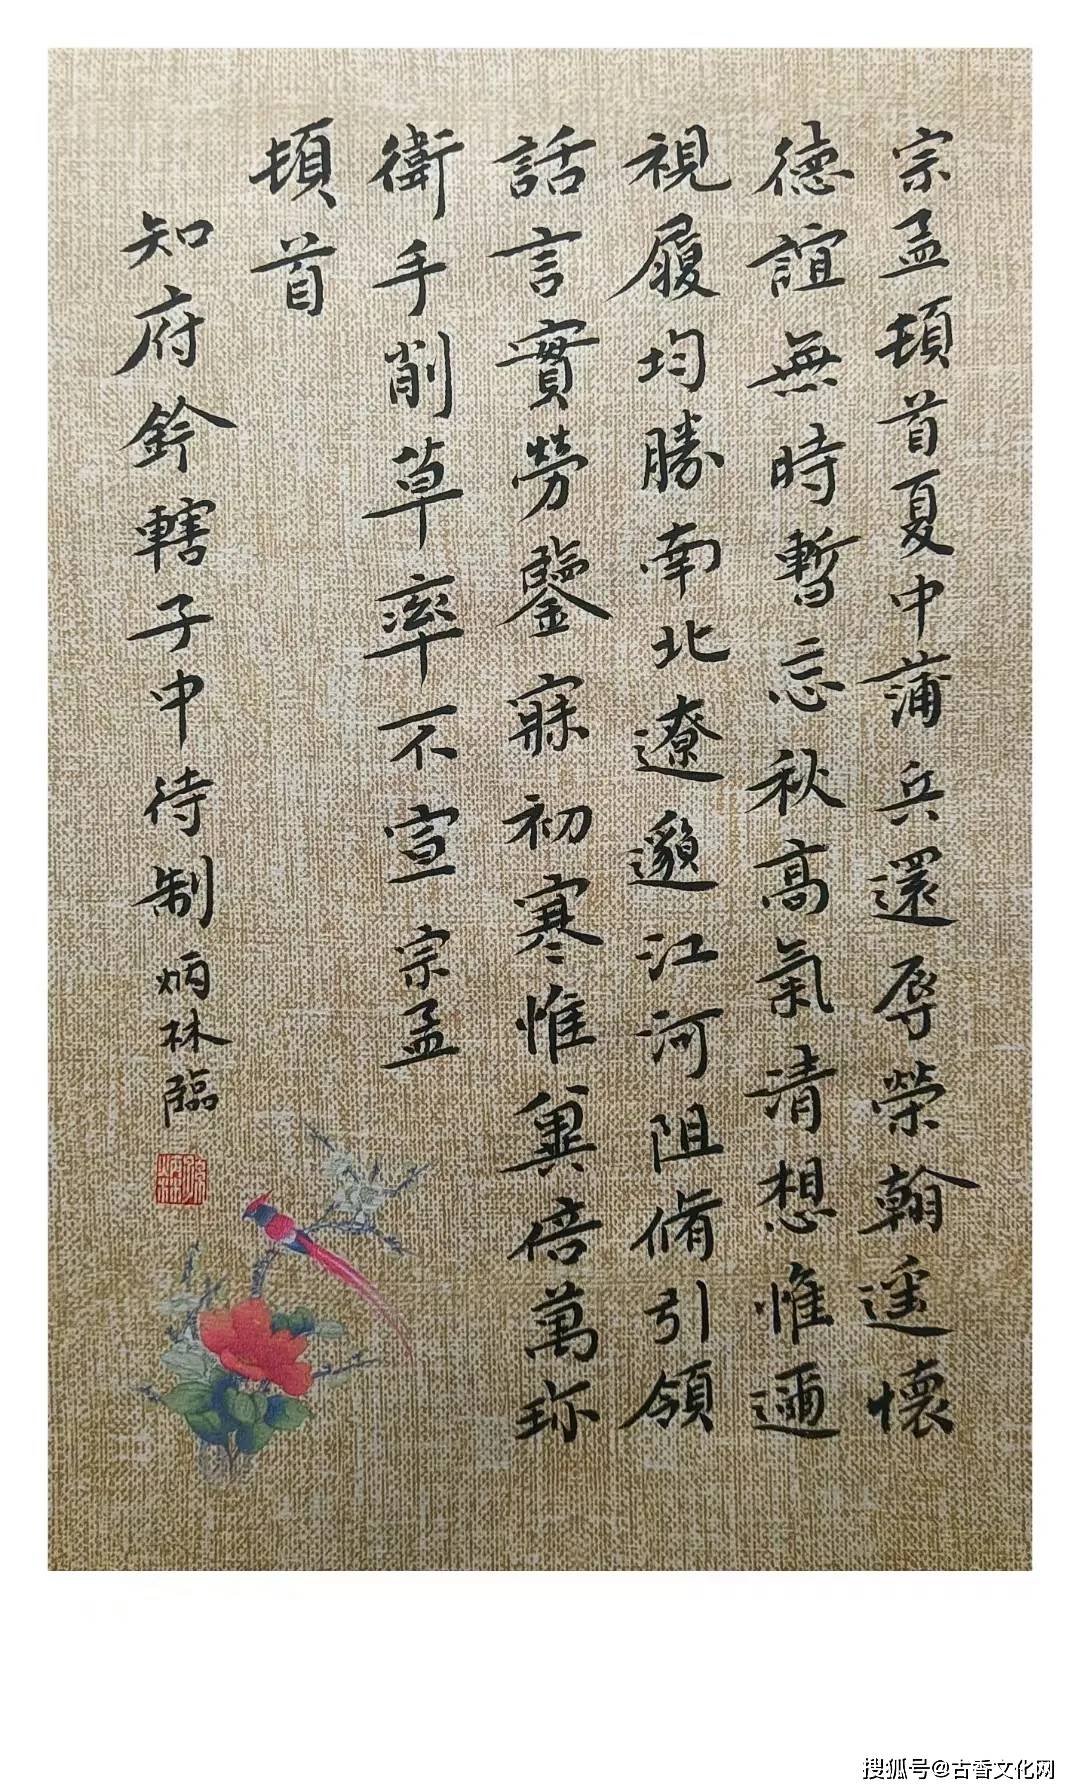 宗孟頓首夏中蒲兵還辱榮翰遥懷
德誼無時暫忘秋高氣清想惟邇
視履均勝南北遼邈江河阻脩引領
話言實勞鑒寐初寒惟兾倍萬珎
衛手削草率不宣宗孟
頓首
知府鈐轄子中待制炳林臨
搜狐号@古香文化网